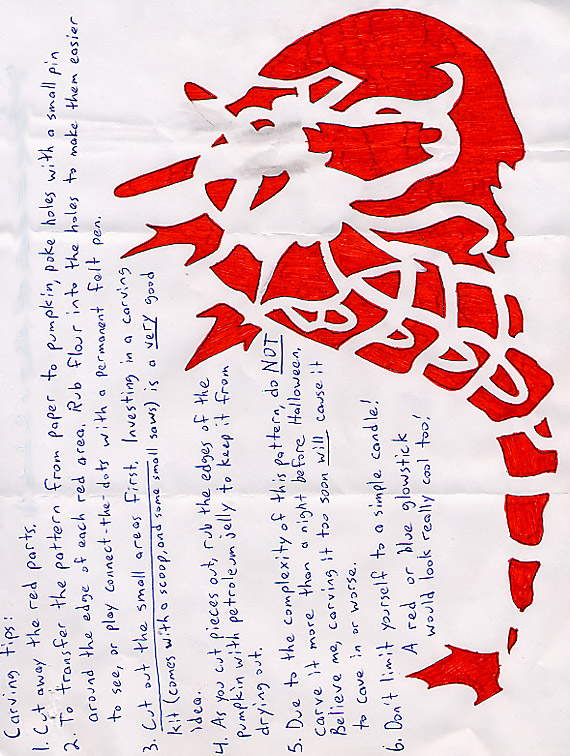 Carving tips:
1. Cut away the red parts.
2. To transfer the pattern from paper to pumpkin, poke holes with a small pin
around the edge of each red area. Rub flour into the holes to make them easier
to see, or play connect-the-dots with a permanent felt pen.
3. Cut out the small areas first. Investing in a carving
kit (comes with a scoop, and some small saws) is a very good
idea.
4. As you cut pieces out, rub the edges of the
pumpkin with petroleum jelly to keep it from
drying out.
5. Due to the complexity of this pattern, do NOT
carve it more than a night before Halloween,
Believe me, carving it too soon will cause it
to cave in or worse.
6. Don't limit yourself to a simple candle!
A red or blue glowstick
would look really cool too!